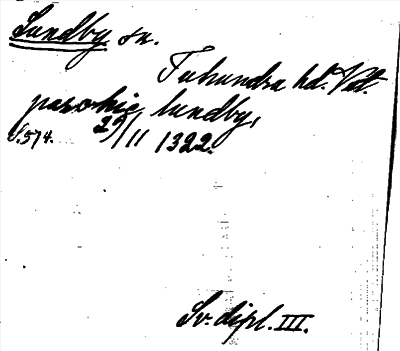 Lundby sn.
Tuhundra hd. Vstl.
parochie lundby,
S. 574. 29/11 1322.
Sv. dipl. III.